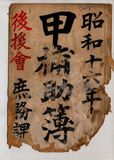 昭和十六年
甲補助簿
後援會
庶務課